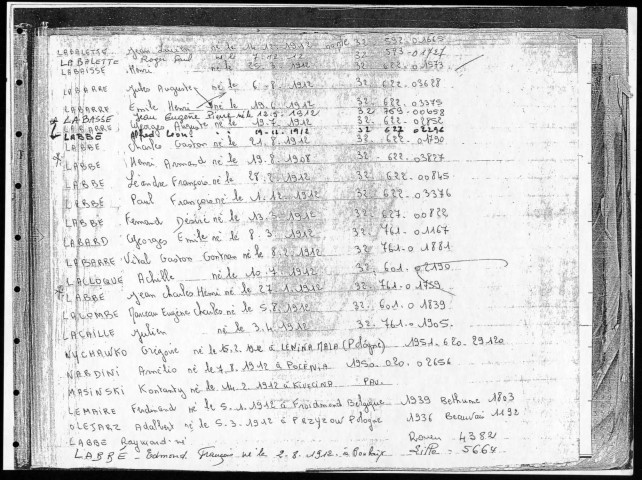 LABALETTE Jean Louis né le 1912 32. 592.01665
LABALETTE Roger Paul né le 1912 32 573-01727
LABAISSE Henri né le 1912 32 622.01573
LABARRE Jules Auguste né le 6-8-1912 32 622.03628
LABARRE Emile Henri né le 19.6.1912 32. 622-03375
LABASSE Jean Eugène Pierre né le 12.5.1912 32 769-00698
LABARRE Georges Auguste né le 19.7.1912 32. 622.02852
LABBE Alfred Louis " " 19-12-1912 32 622 02296
LABBE Charles Gaston né le 21.8.1912 32. 622-01790
LABBE Henri Armand né le 19.8.1908 32. 622.03827
LABBE Léandre François né le 28. 1912 32. 622.00845
LABBE Paul François né le 1.12.1912 32. 622.03376
LABBE Fernand Désiré né le 13. 1912 32. 627.00822
LABARD Georges Emile né le 8.3.1912 32. 761.01167
LABARRE Vital Gaston Gontran né le 8.2.1912 32. 761.01881
LALLOQUE Achille né le 10.7.1912 32. 601.02190
LABBE Jean Charles Henri né le 27.1.1912 32. 761.01759
LALOMBE Marceau Eugène Charles né le 5.8.1912 32. 601.01839
LACAILLE Julien né le 3.4.1912 32. 761.01905.
NYCHAWKO Grégoire né le 15.2. à LENINA MALA (Pologne) 1951.620.29120
NARDINI Amelio né le 7.8.1912 à POCENIA 1950.020.02656
MASINSKI Konstanty né le 14.2.1912 à
LEMAIRE Ferdinand né le 5.1.1912 à Froidmond Belgique 1939 Bethune 1803
OLEJARZ Adalbert né le 5.3.1912 à PRZYZOW Pologne 1936 Beauvais 1192
LABBE Raymond né Rouen 4382
LABBÉ - Edmond François né le 2.8.1912 à Roubaix Lille - 5664